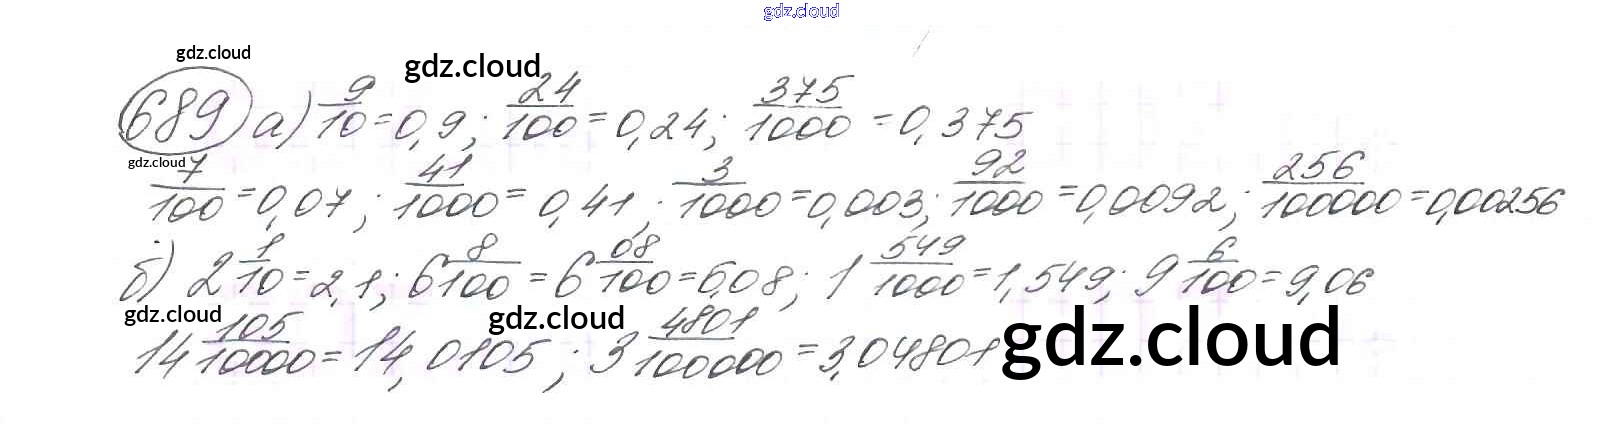 gdz.cloud
gdz.cloud gdz.cloud
689 а) 9/10 = 0,9; 24/100 = 0,24; 375/1000 = 0,375
gdz.cloud
7/100 = 0,07; 41/1000 = 0,41; 3/1000 = 0,003; 92/1000 = 0,0092; 256/100000 = 0,00256
б) 2 1/10 = 2,1; 6 8/100 = 6 08/100 = 6,08; 1 549/1000 = 1,549; 9 6/100 = 9,06
gdz.cloud gdz.cloud gdz.cloud
14 105/10000 = 14,0105; 3 4801/100000 = 3,04801